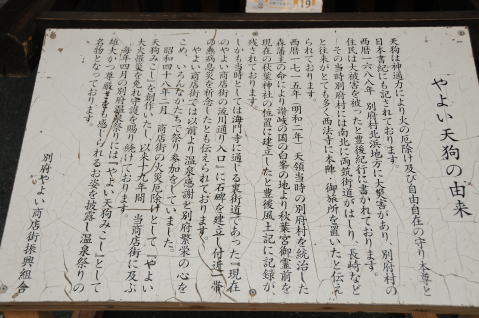 やよい天狗の由来
天狗は神通力により火の厄除け及び自由自在の守り本尊と
日本書紀にも記されております。
西暦一六八八年 別府村北浜地方に大撃害があり、別府村の
住民は大被害を被ったと豊後紀行に書かれております。
その当時別府村には南北に両筑街道がはしり、長崎など
と往来がとても多く西法寺に本陣、御旅所を置いたと伝え
られております。
西暦一七一五年（明和二年）天領当時の別府村を統治した
森藩主の命により讃岐の国の白峯の地より秋葉宮御霊前を
現在の秋葉神社の位置に建立したと豊後風土記に記録が、
残されております。
しかも当時としては海門寺に通じる裏街道であった「現在
のやよい商店街の流川通り入口」に石碑を建立し付近一帯
の無病息災を祈念したとも伝えられております。
やよい商店街では以前より温泉感謝と別府繁栄の心を
こめ、いろんなかたちで祭り参加をしていました。
昭和四十八年二月、商店街の火災厄除けとして「やよい
天狗みこし」を創作いたし以来十九年間、当商店街に及ぶ
大火罹災を免れ守護を賜り続けております。
毎年四月の別府温泉祭りには「やよい天狗みこし」として
雄大かつ尊厳さをも感じられるお姿を披露し温泉祭りの
名物となっております。
別府やよい商店街振興組合
19